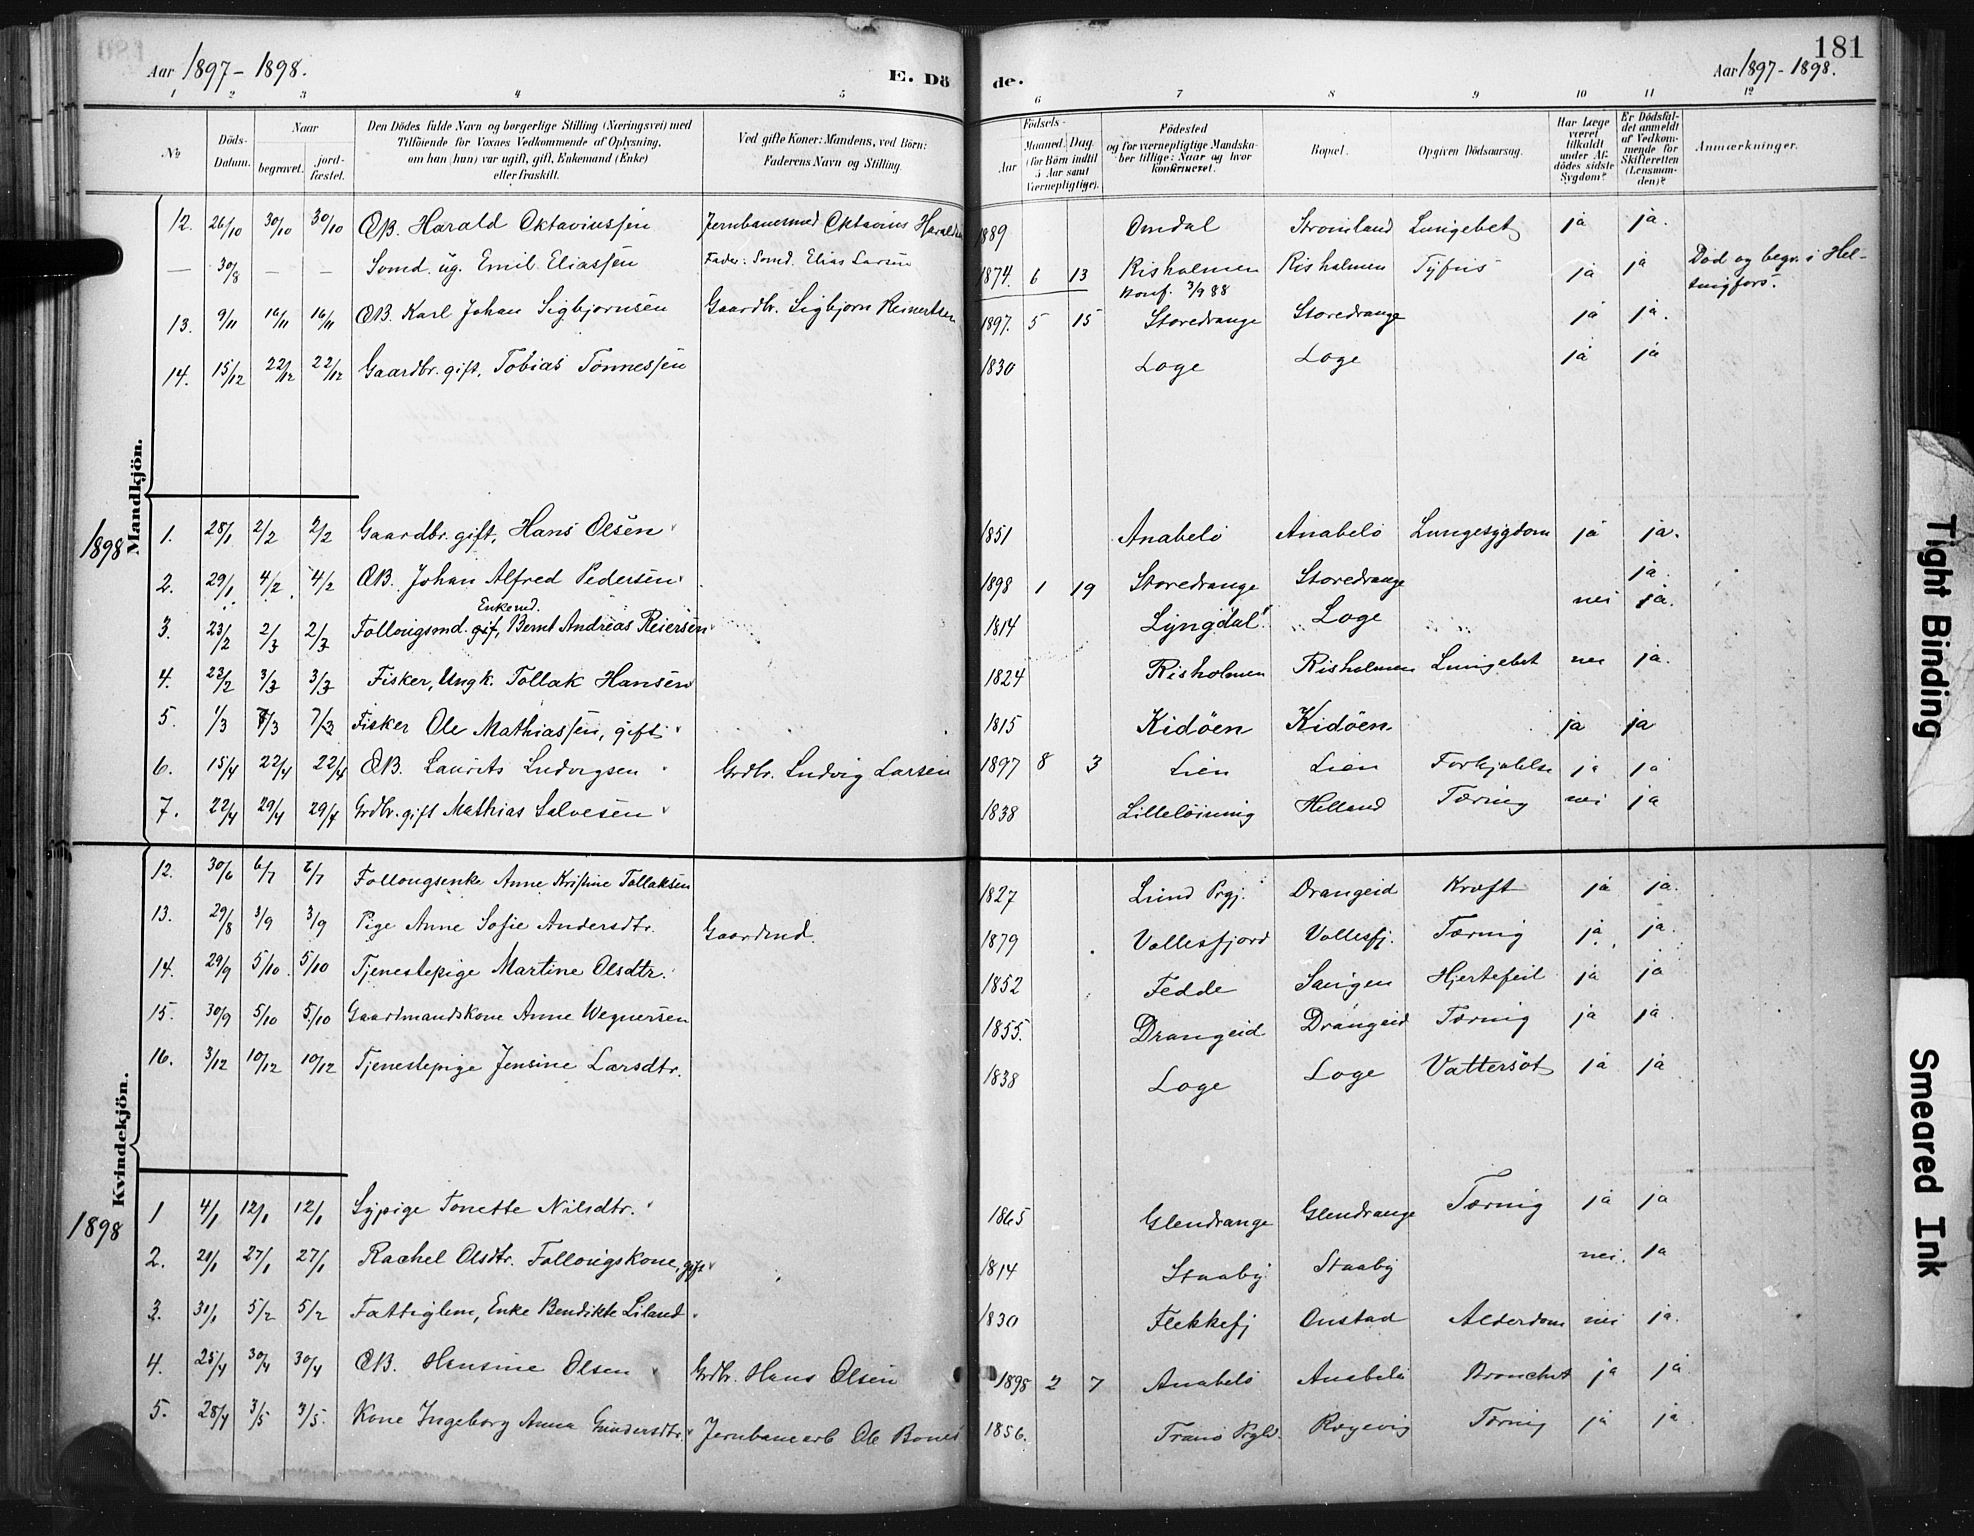 Aar 1897-1898. E. Dö de. Aar 1897-1898. 181
1 2 3 4 5 6 7 8 9 10 11 12
No
Döds-Datum.
Naar
begravet.
jord-fæstet.
Den Dödes fulde Navn og borgerlige Stilling (Næringsvei) med
Tilföiende for Voxnes Vedkommende af Oplysning,
om han (hun) var ugift, gift, Enkemand (Enke)
eller fraskilt.
Ved gifte Koner: Mandens, ved Börn:
Faderens Navn og Stilling.
Födsels-
Aar
Maaned. Dag.
(for Börn indtil
5 Aar samt
Værnepligtige).
Födested
og for værnepligtige Mandska-
ber tillige: Naar og hvor
konfirmeret.
Bopæl.
Opgiven Dödsaarsag.
Har Læge
været
tilkaldt
under Af-
dödes sidste
Sygdom?
Er Dödsfal-
det anmeldt
af Vedkom-
mende for
Skifteretten
(Lensman-
den)?
Anmærkninger.
Mandkjön.
12. 26/10 30/10 30/10 ÆB. Harald Oktaviussen Jernbanemed Oktavius Haralds 1889 Omdal Stromland Lungebet ja ja.
— 30/8 — — Sømd. ug. Emil Eliassen Fader: Sømd. Elias Larsen 1874. 6 13 Risholmen Risholmen Tyfus ja ja Død og begr. i Hel-
konf. 3/9 88 singfors.
13. 9/11 16/11 16/11 ÆB. Karl Johan Sigbjørnsen Gaardbr. Sigbjørn Reinertsen 1897. 5 15 Storedrange Storedrange ja ja.
14. 15/12 22/12 22/12 Gaardbr. gift, Tobias Tønnessen 1830 Loge Loge ja ja
1898
1. 28/1 2/2 2/2 Gaardbr. gift, Hans Olsen 1851 Anabelø Anabelø Lungesygdom ja ja.
2. 29/1 4/2 4/2 ÆB. Johan Alfred Pedersen 1898 1 19 Storedrange Storedrange ja.
Enkemd.
3. 23/2 2/3 2/3 Follougsmd. gif, Bernt Andreas Reiersen 1814 Lyngdal Loge nei ja.
4. 22/2 3/3 3/3 Fisker, Ungk. Tollak Hansen 1824 Risholmen Risholmen Lungebet nei ja.
5. 1/3 7/3 7/3 Fisker Ole Mathiassen, gift 1815 Kidøen Kidøen ja ja
6. 15/4 22/4 22/4 ÆB. Laurits Ludvigsen Grdbr. Ludvig Larsen 1897 8 3 Lien Lien Forkjølelse ja ja
7. 22/4 29/4 29/4 Grdbr. gift Mathias Salvesen 1838 Lilleløining Helland Tæring nei ja
Kvindekjön.
12. 30/6 6/7 6/7 Follougsenke Anne Kristine Tollaksen 1827 Lund Prgj. Drangeid Kræft ja ja.
13. 29/8 3/9 3/9 Pige Anne Sofie Andersdtr. Gaardmd. 1879 Vollesfjord Vollesfj. Tæring ja ja.
14. 29/9 5/10 5/10 Tjenestepige Martine Olsdtr. 1852 Fedde Saugen Hjertefeil ja ja
15. 30/9 5/10 5/10 Gaardmandskone Anne Wegnersen 1855 Drangeid Drangeid Tæring ja ja.
16. 3/12 10/12 10/12 Tjenestepige Jensine Larsdtr. 1838 Loge Loge Vattersot ja ja
1898
1 4/1 12/1 12/1 Sypige Tonette Nilsdtr. 1865 Glendrange Glendrange Tæring ja ja
2. 20/1 27/1 27/1 Rachel Olsdtr. Follougskone, gift 1814 Staaby Staaby nei ja
3. 30/1 5/2 5/2 Fattiglem, Enke Bendikte Liland 1830 Flekkefj Onstad Alderdom nei ja.
4. 25/4 30/4 30/4 ÆB. Hansine Olsen Grdbr. Hans Olsen 1898 2 7 Anabelø Anabelø Bronchit ja ja
5. 28/4 3/5 3/5. Kone Ingeborg Anna Gundersdtr. Jernbanearb Ole Bones 1856. Tranø Prgld. Rægevig Tæring ja ja.
Tight Binding
Smeared Ink